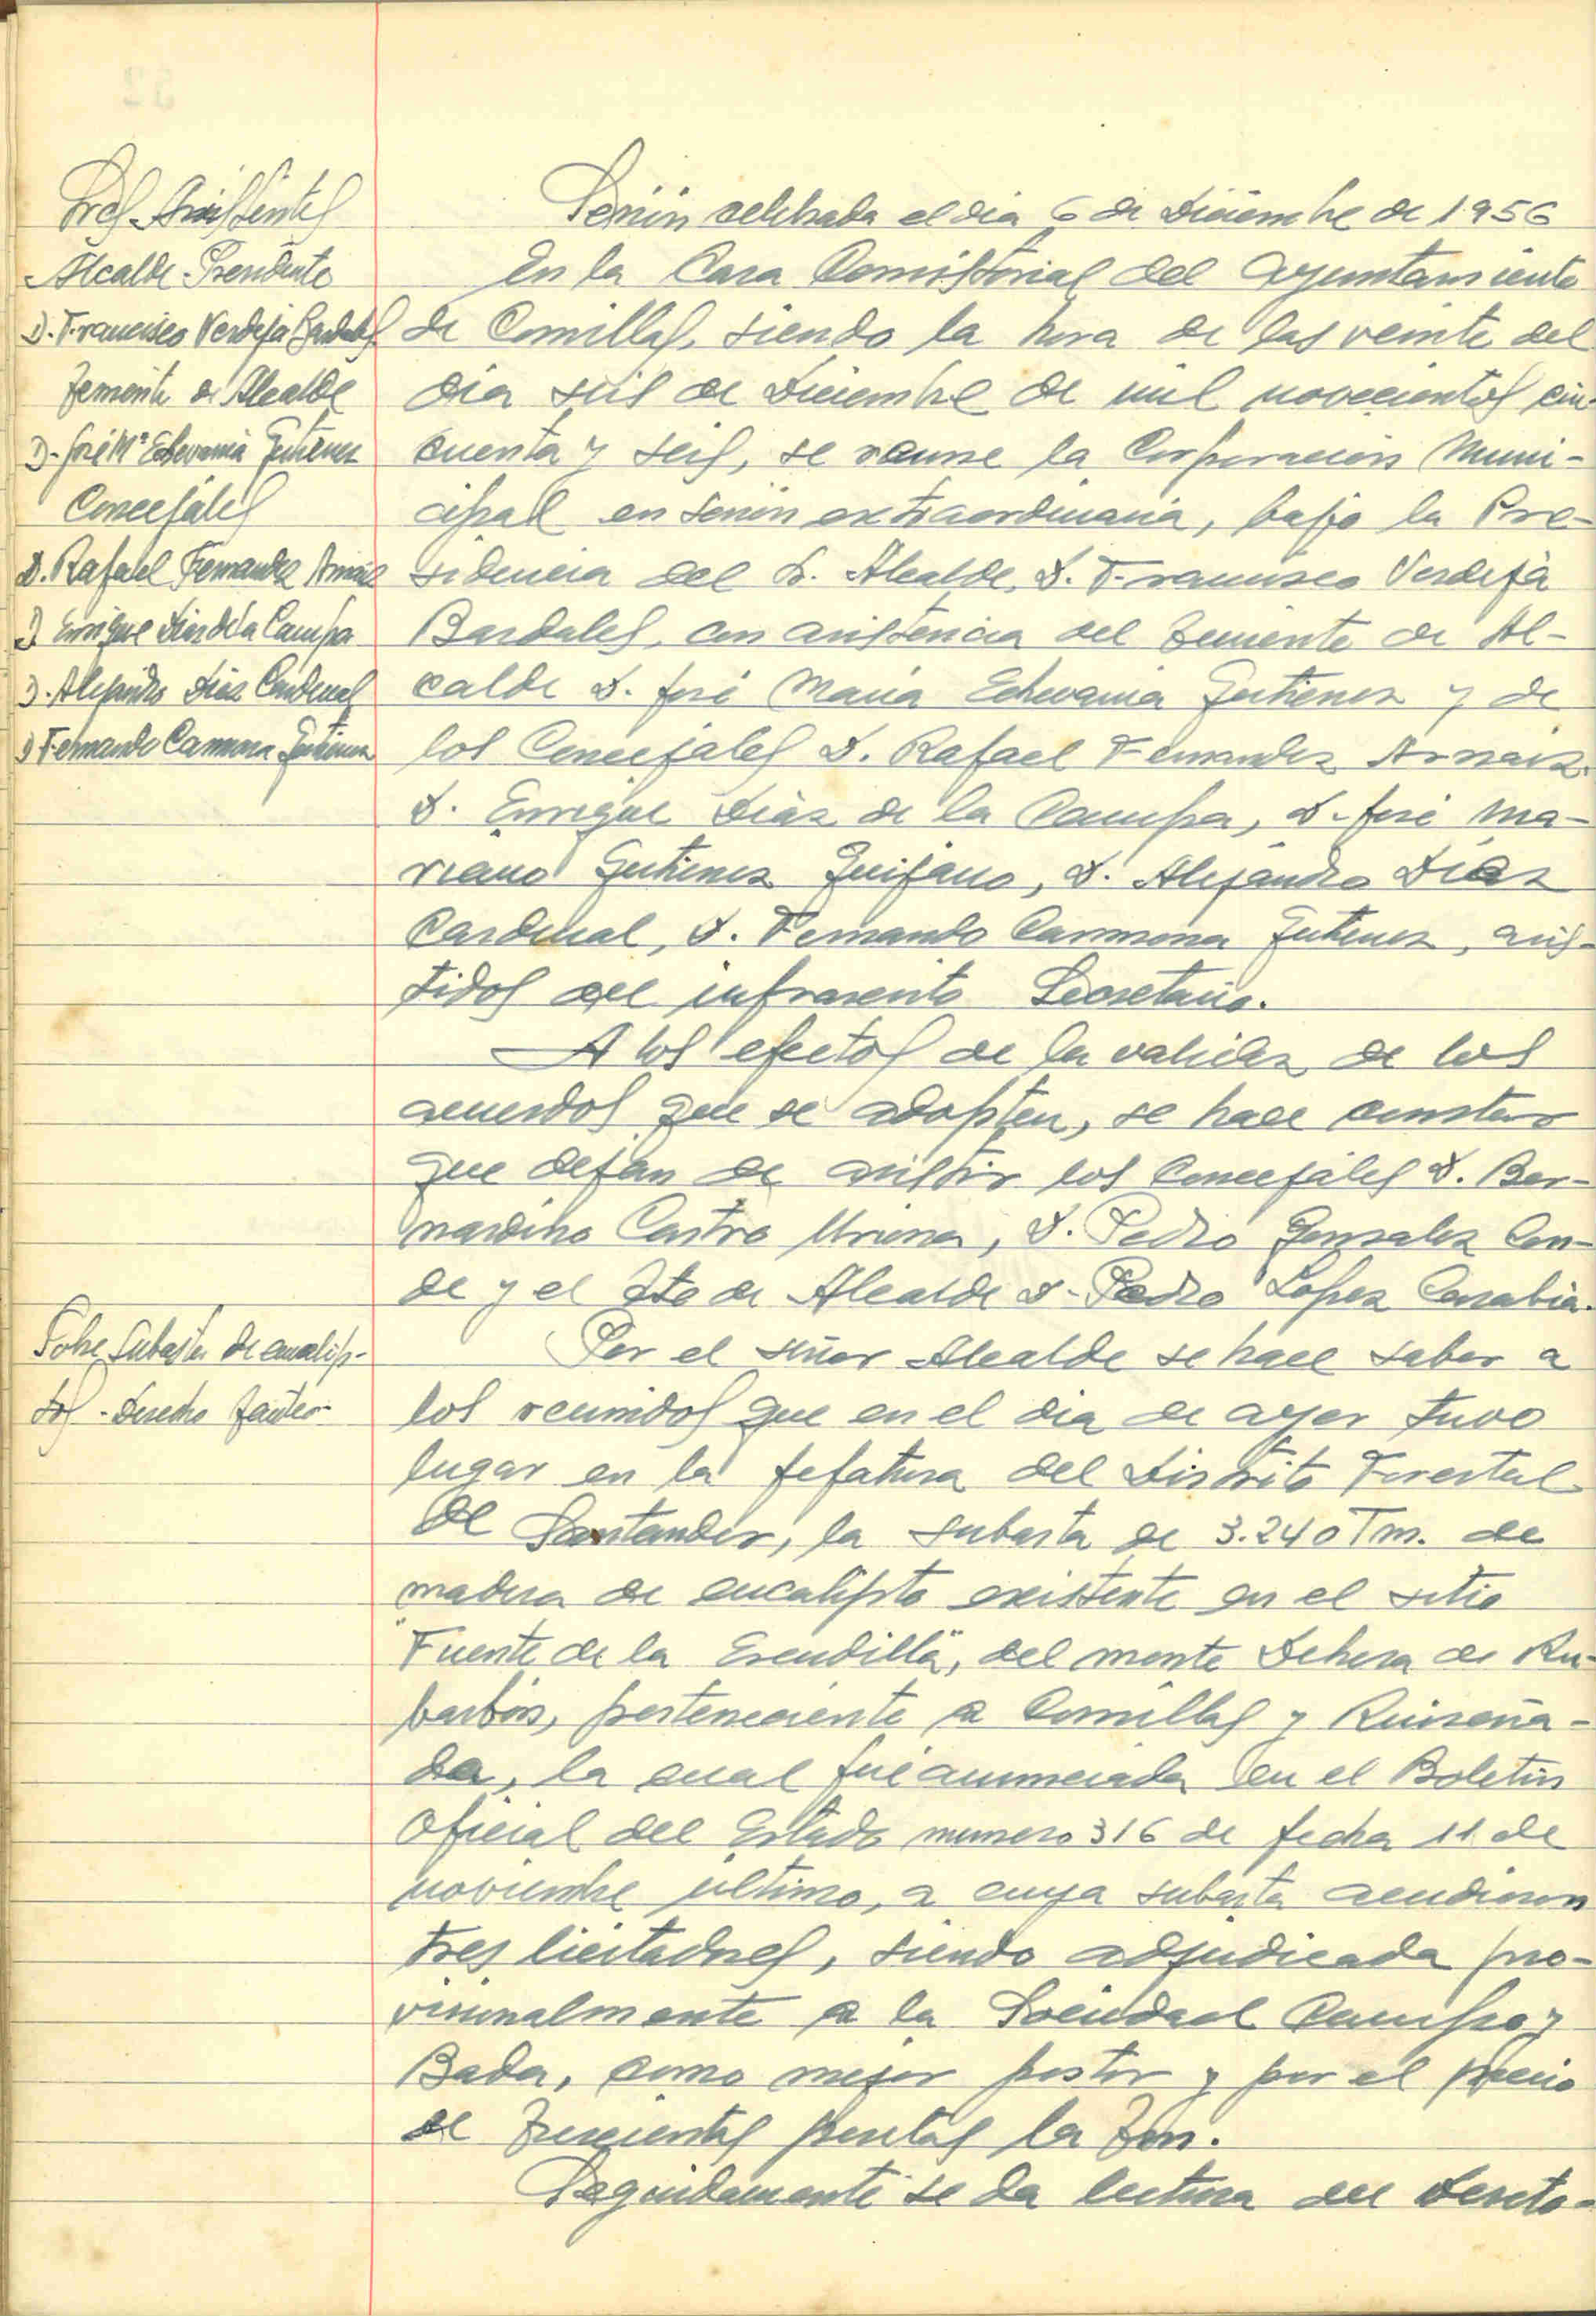 Sres. Asistentes
Alcalde-Presidente
D. Francisco Verdeja Bardales
Teniente de Alcalde
D. José Mª Echevarria Gutierrez
Concejales
D. Rafael Fernandez Arnaiz
D. Enrique Diaz de la Campa
D. Alejandro Diaz Cardenal
D. Fernando Carmona Gutierrez
Sobre subasta de eucalip-
tos - Derecho tanteo
Sesión celebrada el dia 6 de Diciembre de 1956
En la Casa Consistorial del Ayuntamiento
de Comillas, siendo la hora de las veinte del
dia seis de Diciembre de mil novecientos cin-
cuenta y seis, se reune la Corporación Muni-
cipal en sesión extraordinaria, bajo la Pre-
sidencia del Sr. Alcalde, D. Francisco Verdeja
Bardales, con asistencia del Teniente de Al-
calde D. José Maria Echevarria Gutierrez y de
los Concejales D. Rafael Fernandez Arnaiz,
D. Enrique Diaz de la Campa, D. José Ma-
riano Gutierrez Quijano, D. Alejandro Diaz
Cardenal, D. Fernando Carmona Gutierrez, asis-
tidos del infrascrito Secretario.
A los efectos de la validez de los
acuerdos que se adopten, se hace constar
que dejan de asistir los Concejales D. Ber-
nardino Castro, D. Pedro Gonzalez Con-
de y el Tte de Alcalde D. Pedro Lopez Canabia.
Por el señor Alcalde se hace saber a
los reunidos que en el dia de ayer tuvo
lugar en la Jefatura del Distrito Forestal
de Santander, la subasta de 3.240 Tm. de
madera de eucalipto existente en el sitio
"Fuente de la Escudilla", del monte Dehesa de Ru-
barbón, perteneciente a Comillas y Ruiseña-
da, la cual fué anunciada en el Boletin
Oficial del Estado numero 316 de fecha 11 de
noviembre último, a cuya subasta acudieron
tres licitadores, siendo adjudicada pro-
visionalmente a la Sociedad Campo y
Bada, como mejor postor y por el precio
de Trescientas pesetas la Tm.
Seguidamente se da lectura del Decreto-